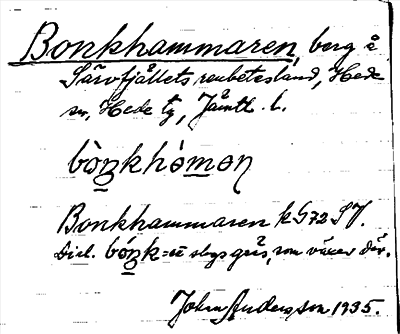 Bonkhammaren, berg å
Särvfjällets renbetesland, Hede
sn, Hede tg, Jämtl. l.
bòŋkhòmən
Bonkhammaren k 572 SJ.
Dial. bóŋk = ett slags gräs, som växer där.
John Anderson 1935.